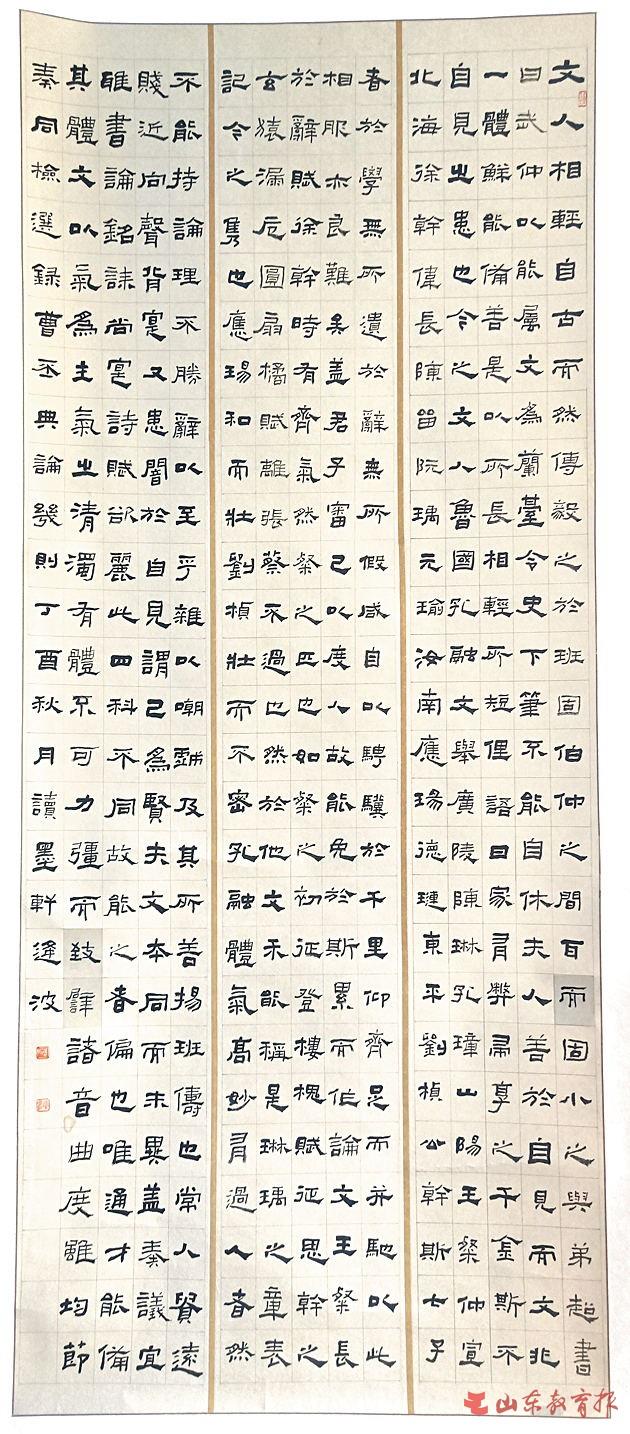 文人相輕自古而然傅毅之於班固伯仲之間耳而固小之與弟超書
曰武仲以能属文為蘭臺令史下筆不能自休夫人善於自見而文非
一體鮮能備善是以所長相輕所短俚語曰家有弊帚享之千金斯不
自見之患也今之文人魯國孔融文舉廣陵陳琳孔璋山陽王粲仲宣
北海徐幹偉長陳留阮瑀元瑜汝南應瑒德璉東平劉楨公幹斯七子
者於學無所遺於辭無所假咸自以騁驥於千里仰齊足而并馳以此
相服亦良難矣盖君子審己以度人故能免於斯累而作論文王粲長
於辭賦徐幹時有齊氣然粲之匹也如粲之初征登樓槐賦征思幹之
玄猿漏卮圓扇橘賦雖張蔡不過也然於他文未能稱是琳瑀之章表
記今之雋也應瑒和而壯劉楨壯而不密孔融體氣高妙有過人者然
不能持論理不勝辭以至乎雜以嘲戲及其所善揚班儔也常人貴遠
賤近向聲背實又患闇於自見謂己為賢夫文本同而末異盖奏議宜
雅書論銘誄尚實詩賦欲麗此四科不同故能之者偏也唯通才能備
其體文以氣為主氣之清濁有體不可力彊而致譬諸音曲度雖均節
奏同檢選録曹丕典論幾則丁酉秋月讀墨軒逄波
山东教育报